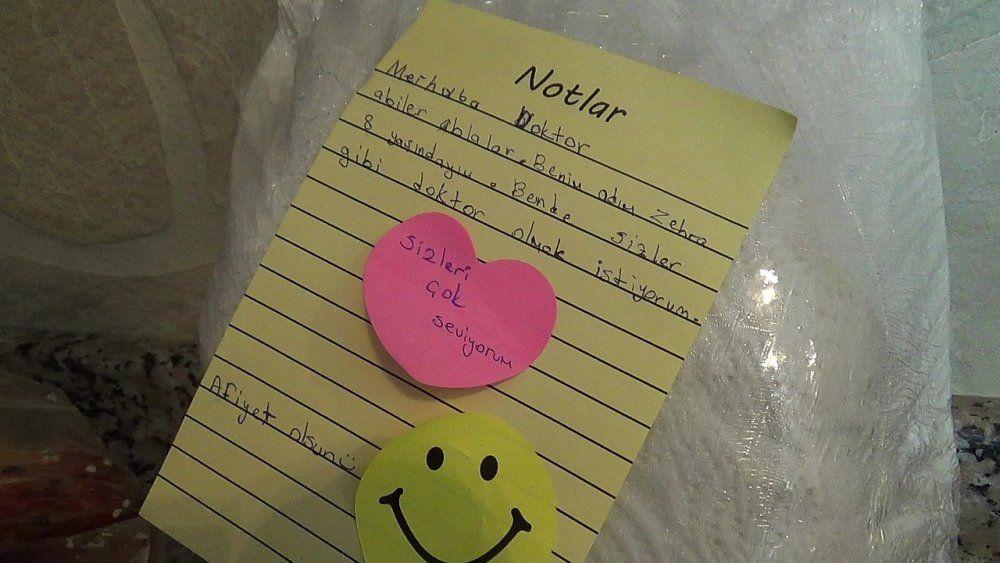 Notlar
Merhaba Doktor
abiler ablalar. Benim adım Zehra
8 yaşındayım. Bende sizler
gibi doktor olmak istiyorum.
Sizleri
çok
seviyorum
Afiyet olsun